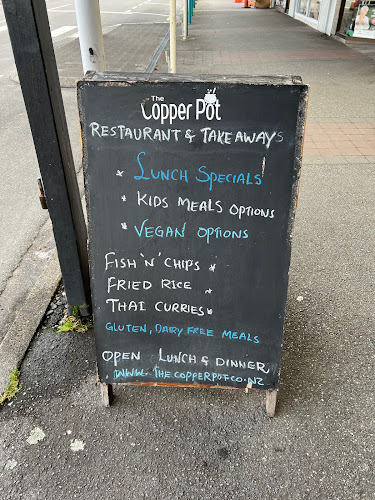 The
Copper Pot
RESTAURANT & TAKEAWAYS
* LUNCH SPECIALS
* KIDS MEALS OPTIONS
* VEGAN OPTIONS
FISH 'N' CHIPS *
FRIED RICE *
THAI CURRIES *
GLUTEN, DAIRY FREE MEALS
OPEN LUNCH & DINNER
WWW.THECOPPERPOT.CO.NZ